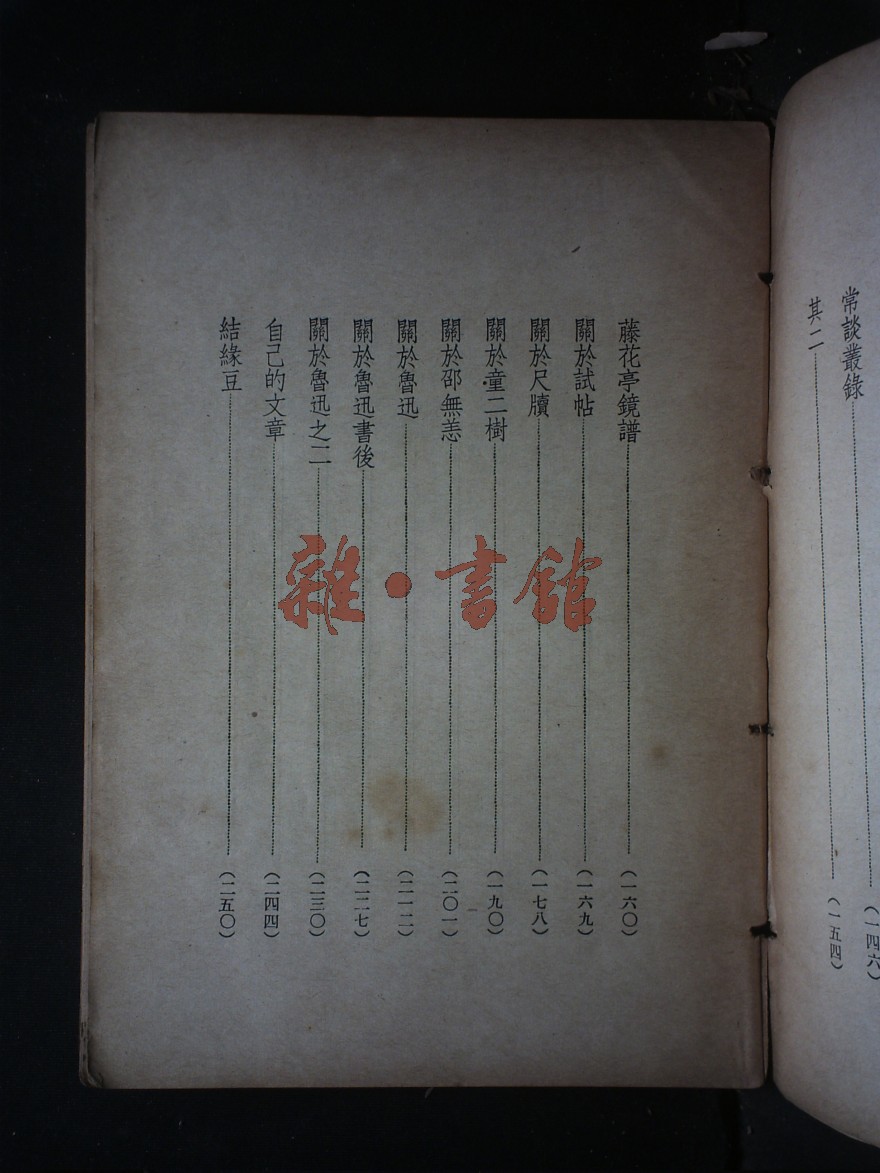 常談叢錄……(一四六)
其二……(一五四)
藤花亭鏡譜……(一六〇)
關於試帖……(一六九)
關於尺牘……(一七八)
關於童二樹……(一九〇)
關於邵無恙……(二〇一)
關於魯迅……(二一二)
關於魯迅書後……(二二七)
關於魯迅之二……(二三〇)
自己的文章……(二四四)
結緣豆……(二五〇)
雜·書館